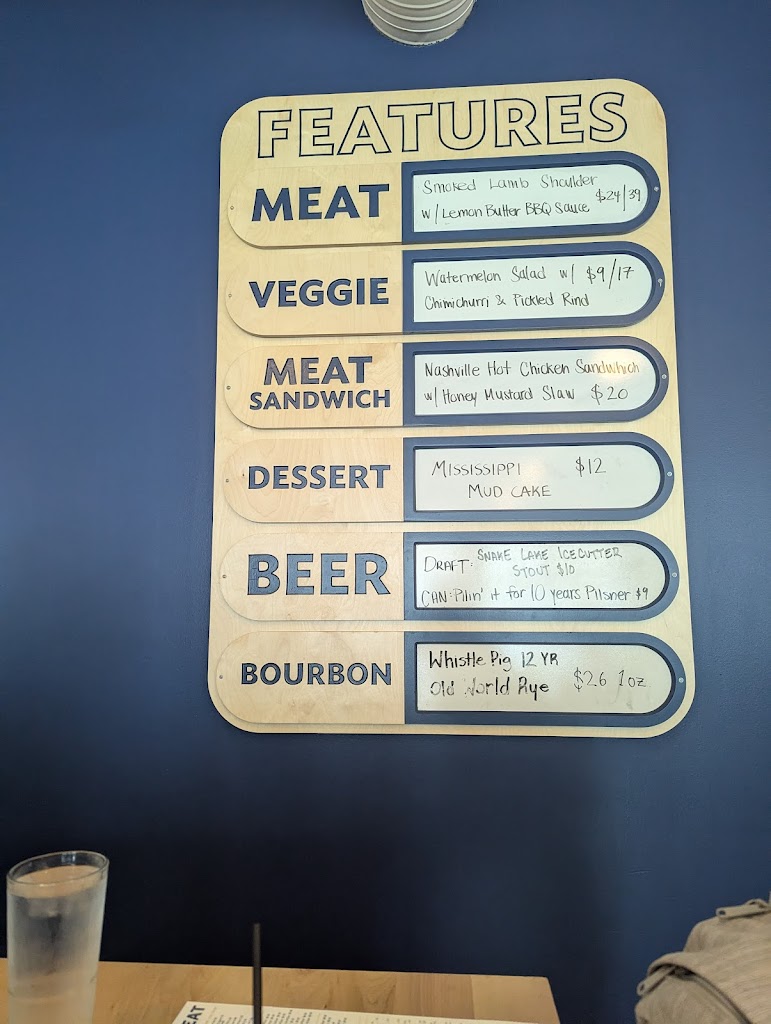 FEATURES
MEAT
Smoked Lamb Shoulder
w/ Lemon Butter BBQ Sauce $24/39
VEGGIE
Watermelon Salad w/ $9/17
Chimichurri & Pickled Rind
MEAT
SANDWICH
Nashville Hot Chicken Sandwhich
w/ Honey Mustard Slaw $20
DESSERT
MISSISSIPPI $12
MUD CAKE
BEER
DRAFT: SNAKE LAKE ICECUTTER
STOUT $10
CAN: Pilin' it for 10 years Pilsner $9
BOURBON
Whistle Pig 12 YR
Old World Rye $26 1oz
EAT